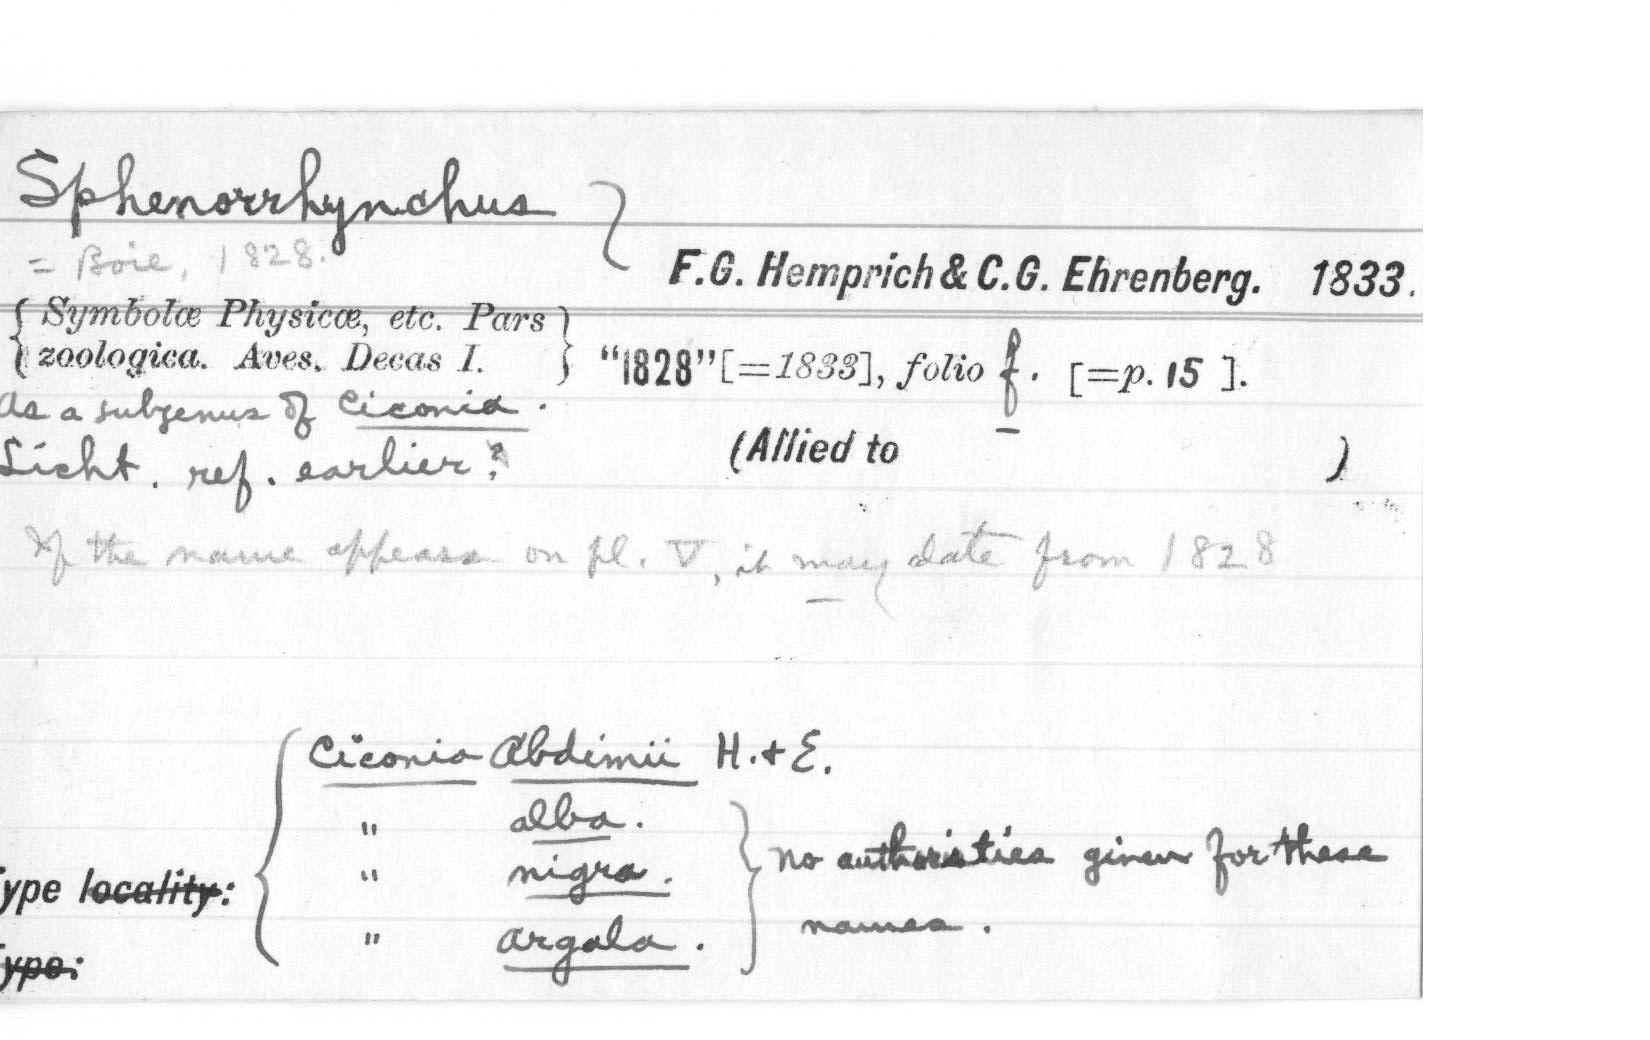 Sphenorrhynchus
= Boie, 1828.
F.G. Hemprich & C.G. Ehrenberg. 1833.
{ Symbolæ Physicæ, etc. Pars zoologica. Aves. Decas I. } "1828" [=1833], folio f. [=p. 15 ].
As a subgenus of Ciconia.
(Allied to )
Licht. ref. earlier?
If the name appears on pl. V, it may date from 1828
Ciconia Abdimii H. & E.
" alba.
" nigra.
" argala.
no authorities given for these
names.
ype locality:
ype: